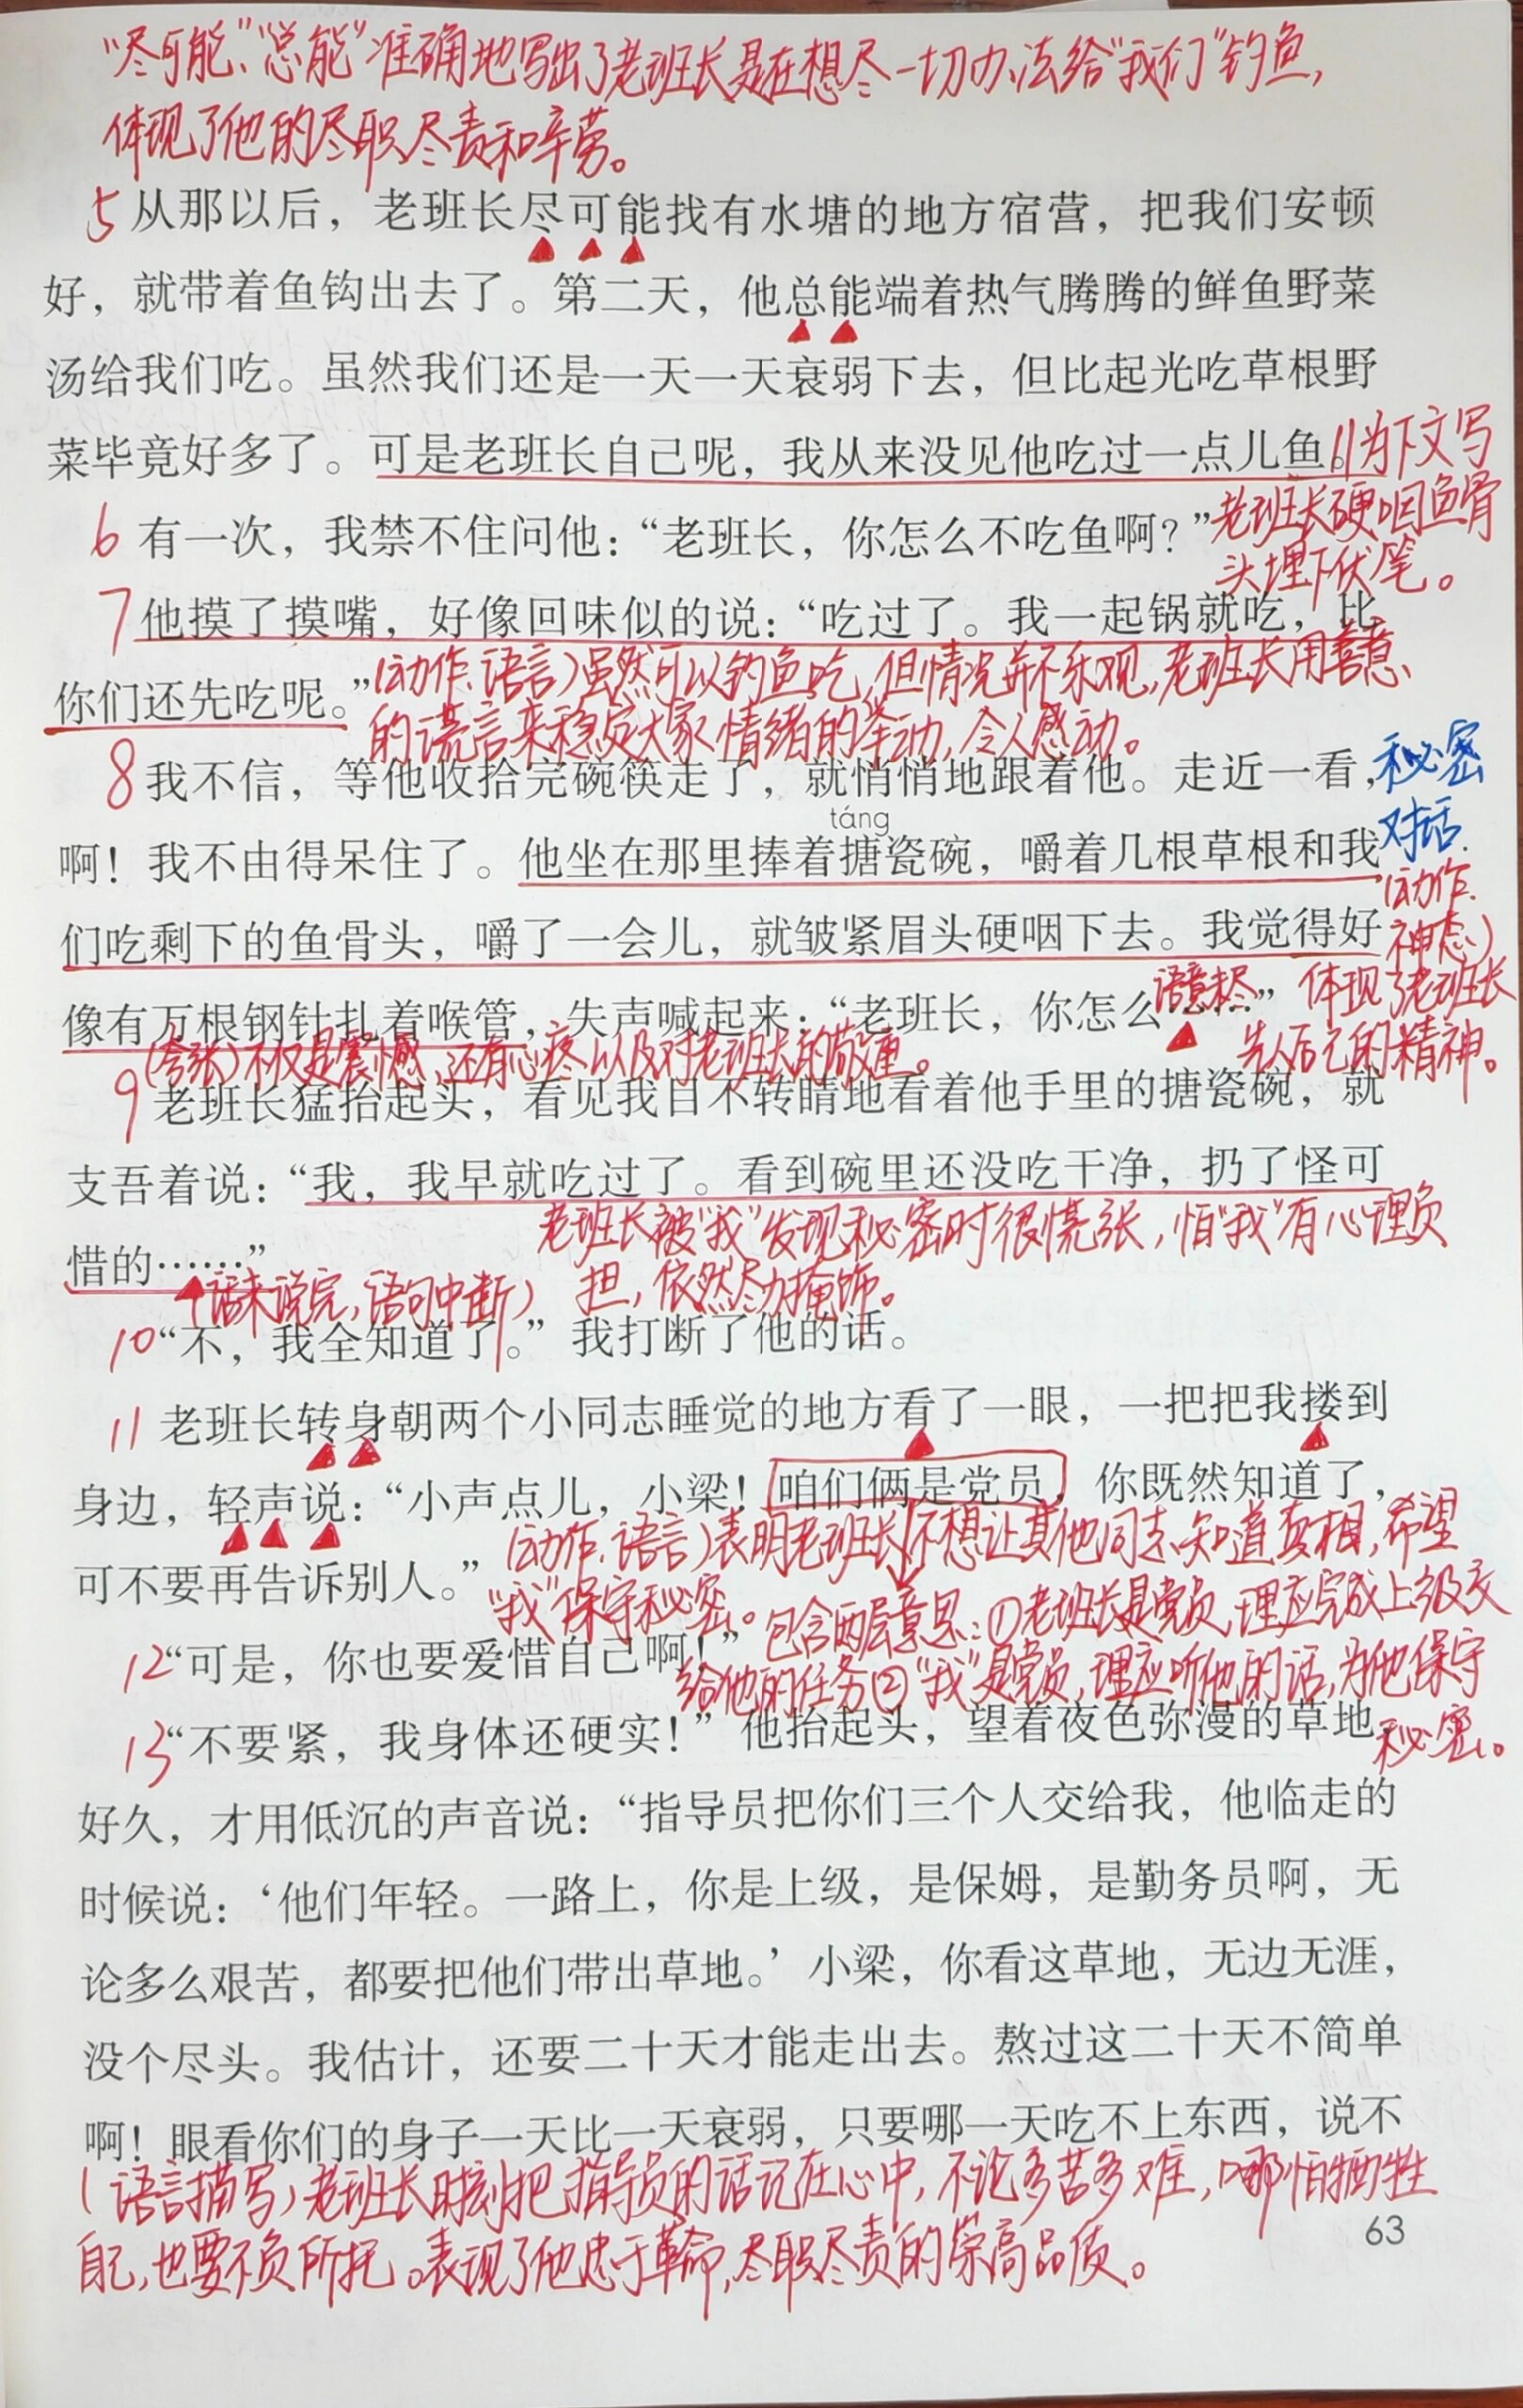 “尽可能”、“总能”准确地写出了老班长是在想尽一切办法给“我们”钓鱼，
体现了他的尽职尽责和辛劳。
5 从那以后，老班长尽可能找有水塘的地方宿营，把我们安顿
好，就带着鱼钩出去了。第二天，他总能端着热气腾腾的鲜鱼野菜
汤给我们吃。虽然我们还是一天一天衰弱下去，但比起光吃草根野
菜毕竟好多了。可是老班长自己呢，我从来没见他吃过一点儿鱼。
为下文写
老班长硬咽鱼骨
头埋下伏笔。
6 有一次，我禁不住问他：“老班长，你怎么不吃鱼啊？”
7 他摸了摸嘴，好像回味似的说：“吃过了。我一起锅就吃，比
你们还先吃呢。”
(动作、语言)虽然可以钓鱼吃，但情况并不乐观，老班长用善意
的谎言来稳定大家情绪的举动，令人感动。
8 我不信，等他收拾完碗筷走了，就悄悄地跟着他。走近一看，
秘密
对话
táng
啊！我不由得呆住了。他坐在那里捧着搪瓷碗，嚼着几根草根和我
们吃剩下的鱼骨头，嚼了一会儿，就皱紧眉头硬咽下去。我觉得好
(动作、
神态)
体现了老班长
先人后己的精神。
语意未尽
像有万根钢针扎着喉管，失声喊起来：“老班长，你怎么……”
(夸张)不仅是震憾，还有心疼以及对老班长的敬重。
9 老班长猛抬起头，看见我目不转睛地看着他手里的搪瓷碗，就
支吾着说：“我，我早就吃过了。看到碗里还没吃干净，扔了怪可
惜的……”
老班长被“我”发现秘密时很慌张，怕“我”有心理负
担，依然尽力掩饰。
(话未说完，语句中断)
10 “不，我全知道了。”我打断了他的话。
11 老班长转身朝两个小同志睡觉的地方看了一眼，一把把我搂到
身边，轻声说：“小声点儿，小梁！咱们俩是党员，你既然知道了，
可不要再告诉别人。”
(动作、语言)表明老班长不想让其他同志知道真相，希望
“我”保守秘密。
包含两层意思：①老班长是党员，理应完成上级交
给他的任务②“我”是党员，理应听他的话，为他保守
秘密。
12 “可是，你也要爱惜自己啊！”
13 “不要紧，我身体还硬实！”他抬起头，望着夜色弥漫的草地，
好久，才用低沉的声音说：“指导员把你们三个人交给我，他临走的
时候说：‘他们年轻。一路上，你是上级，是保姆，是勤务员啊，无
论多么艰苦，都要把他们带出草地。’小梁，你看这草地，无边无涯，
没个尽头。我估计，还要二十天才能走出去。熬过这二十天不简单
啊！眼看你们的身子一天比一天衰弱，只要哪一天吃不上东西，说不
(语言描写)老班长时刻把指导员的话记在心中，不论多苦多难，哪怕牺牲
自己，也要不负所托。表现了他忠于革命，尽职尽责的崇高品质。
63